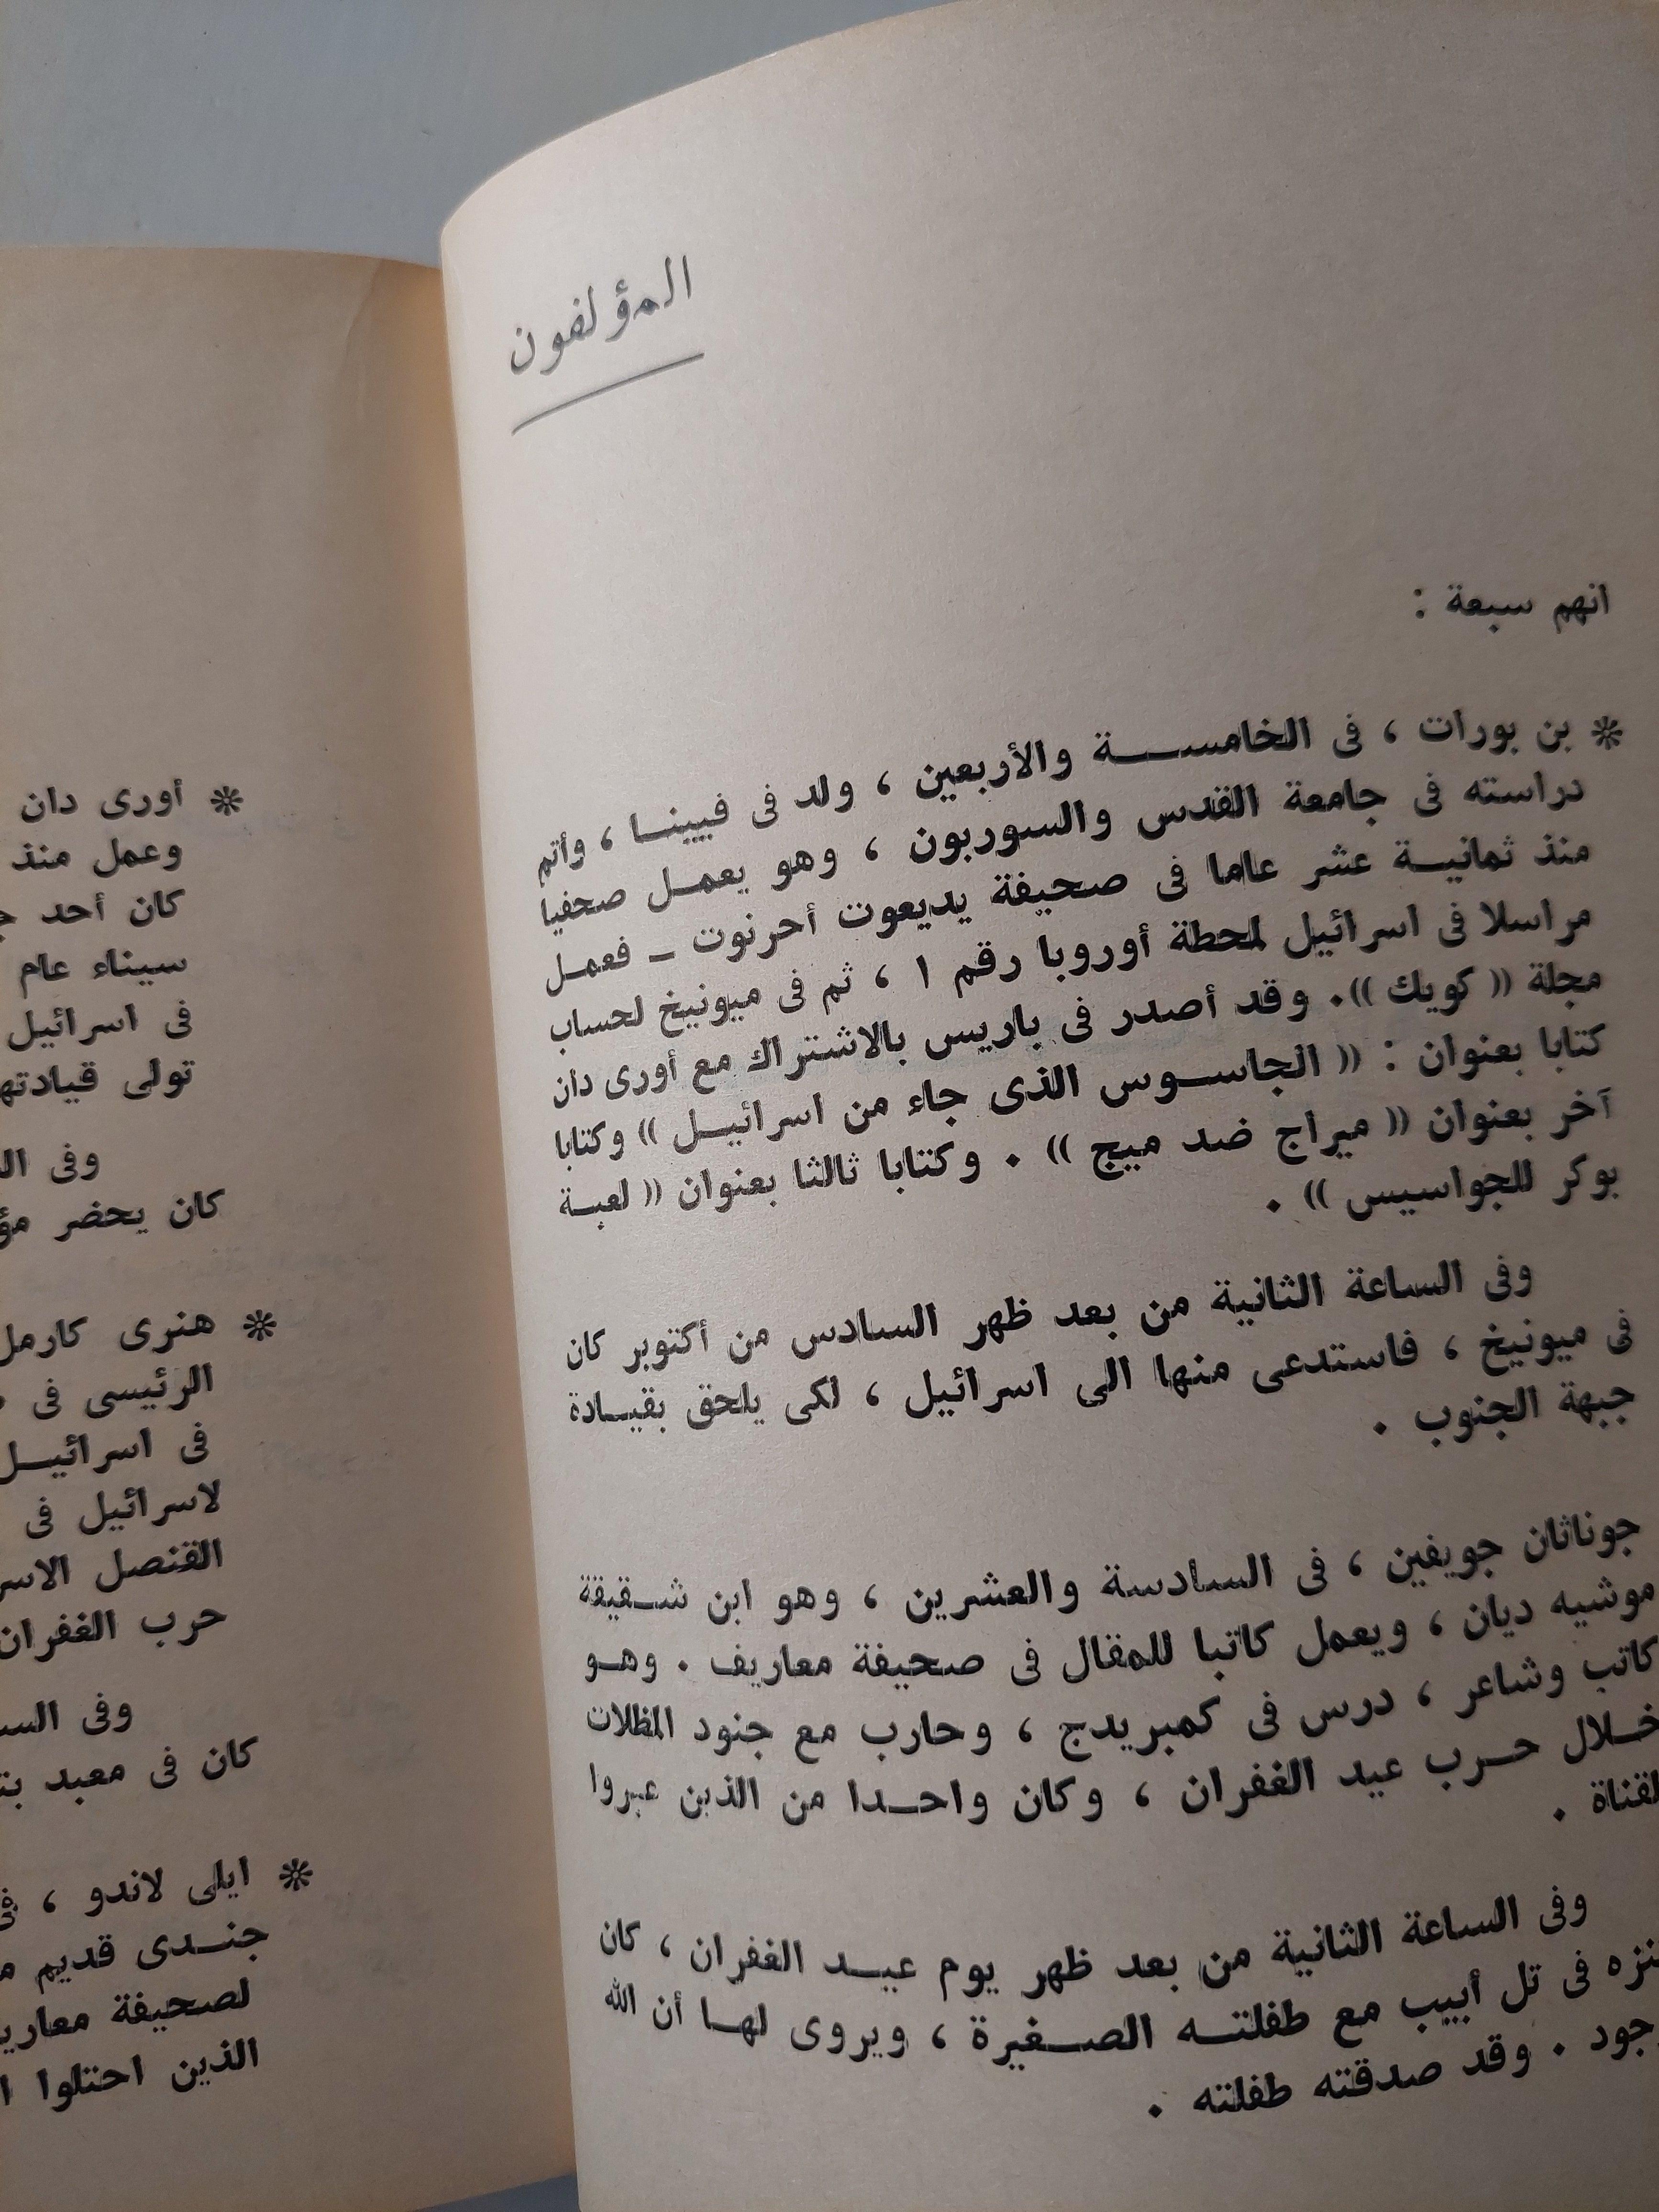 المؤلفون
انهم سبعة :
* بن بورات ، فى الخامســـة والأربعين ، ولد فى فيينــا ، وأتم
دراسته فى جامعة القدس والسوربون ، وهو يعمــل صحفيا
منذ ثمانيــة عشر عاما فى صحيفة يديعوت أحرنوت ــ فعمــل
مراسلا فى اسرائيل لمحطة أوروبا رقم ١ ، ثم فى ميونيخ لحساب
مجلة (( كويك )). وقد أصدر فى باريس بالاشتراك مع أورى دان
كتابا بعنوان : (( الجاســوس الذى جاء من اسرائيــل )) وكتابا
آخر بعنوان (( ميراج ضد ميج )) . وكتابا ثالثا بعنوان (( لعبــة
بوكر للجواسيس )) .
وفى الساعة الثانية من بعد ظهر السادس من أكتوبر كان
فى ميونيخ ، فاستدعى منها الى اسرائيل ، لكى يلحق بقيــادة
جبهة الجنوب .
جوناثان جويفين ، فى السادسة والعشرين ، وهو ابن شــقيقة
موشيه ديان ، ويعمل كاتبا للمقال فى صحيفة معاريف . وهــو
كاتب وشاعر ، درس فى كمبريدج ، وحارب مع جنود المظلات
خــلال حــرب عيد الغفران ، وكان واحــدا من الذين عبروا
لقناة .
وفى الساعة الثانية من بعد ظهر يوم عيــد الغفران ، كان
نزه فى تل أبيب مع طفلتــه الصــغيرة ، ويروى لهــا أن الله
جود . وقد صدقته طفلته .
* أورى دان
وعمل منذ
كان أحد
سيناء عام
فى اسرائيل
تولى قيادته
وفى
كان يحضر
* هنرى كارمل
الرئيسى فى
فى اسرائيــل
لاسرائيل فى
القنصل
حرب الغفران
وفى
كان فى معبد
* ايلى لاندو ،
جنــدى قديم
لصحيفة
الذين احتلوا